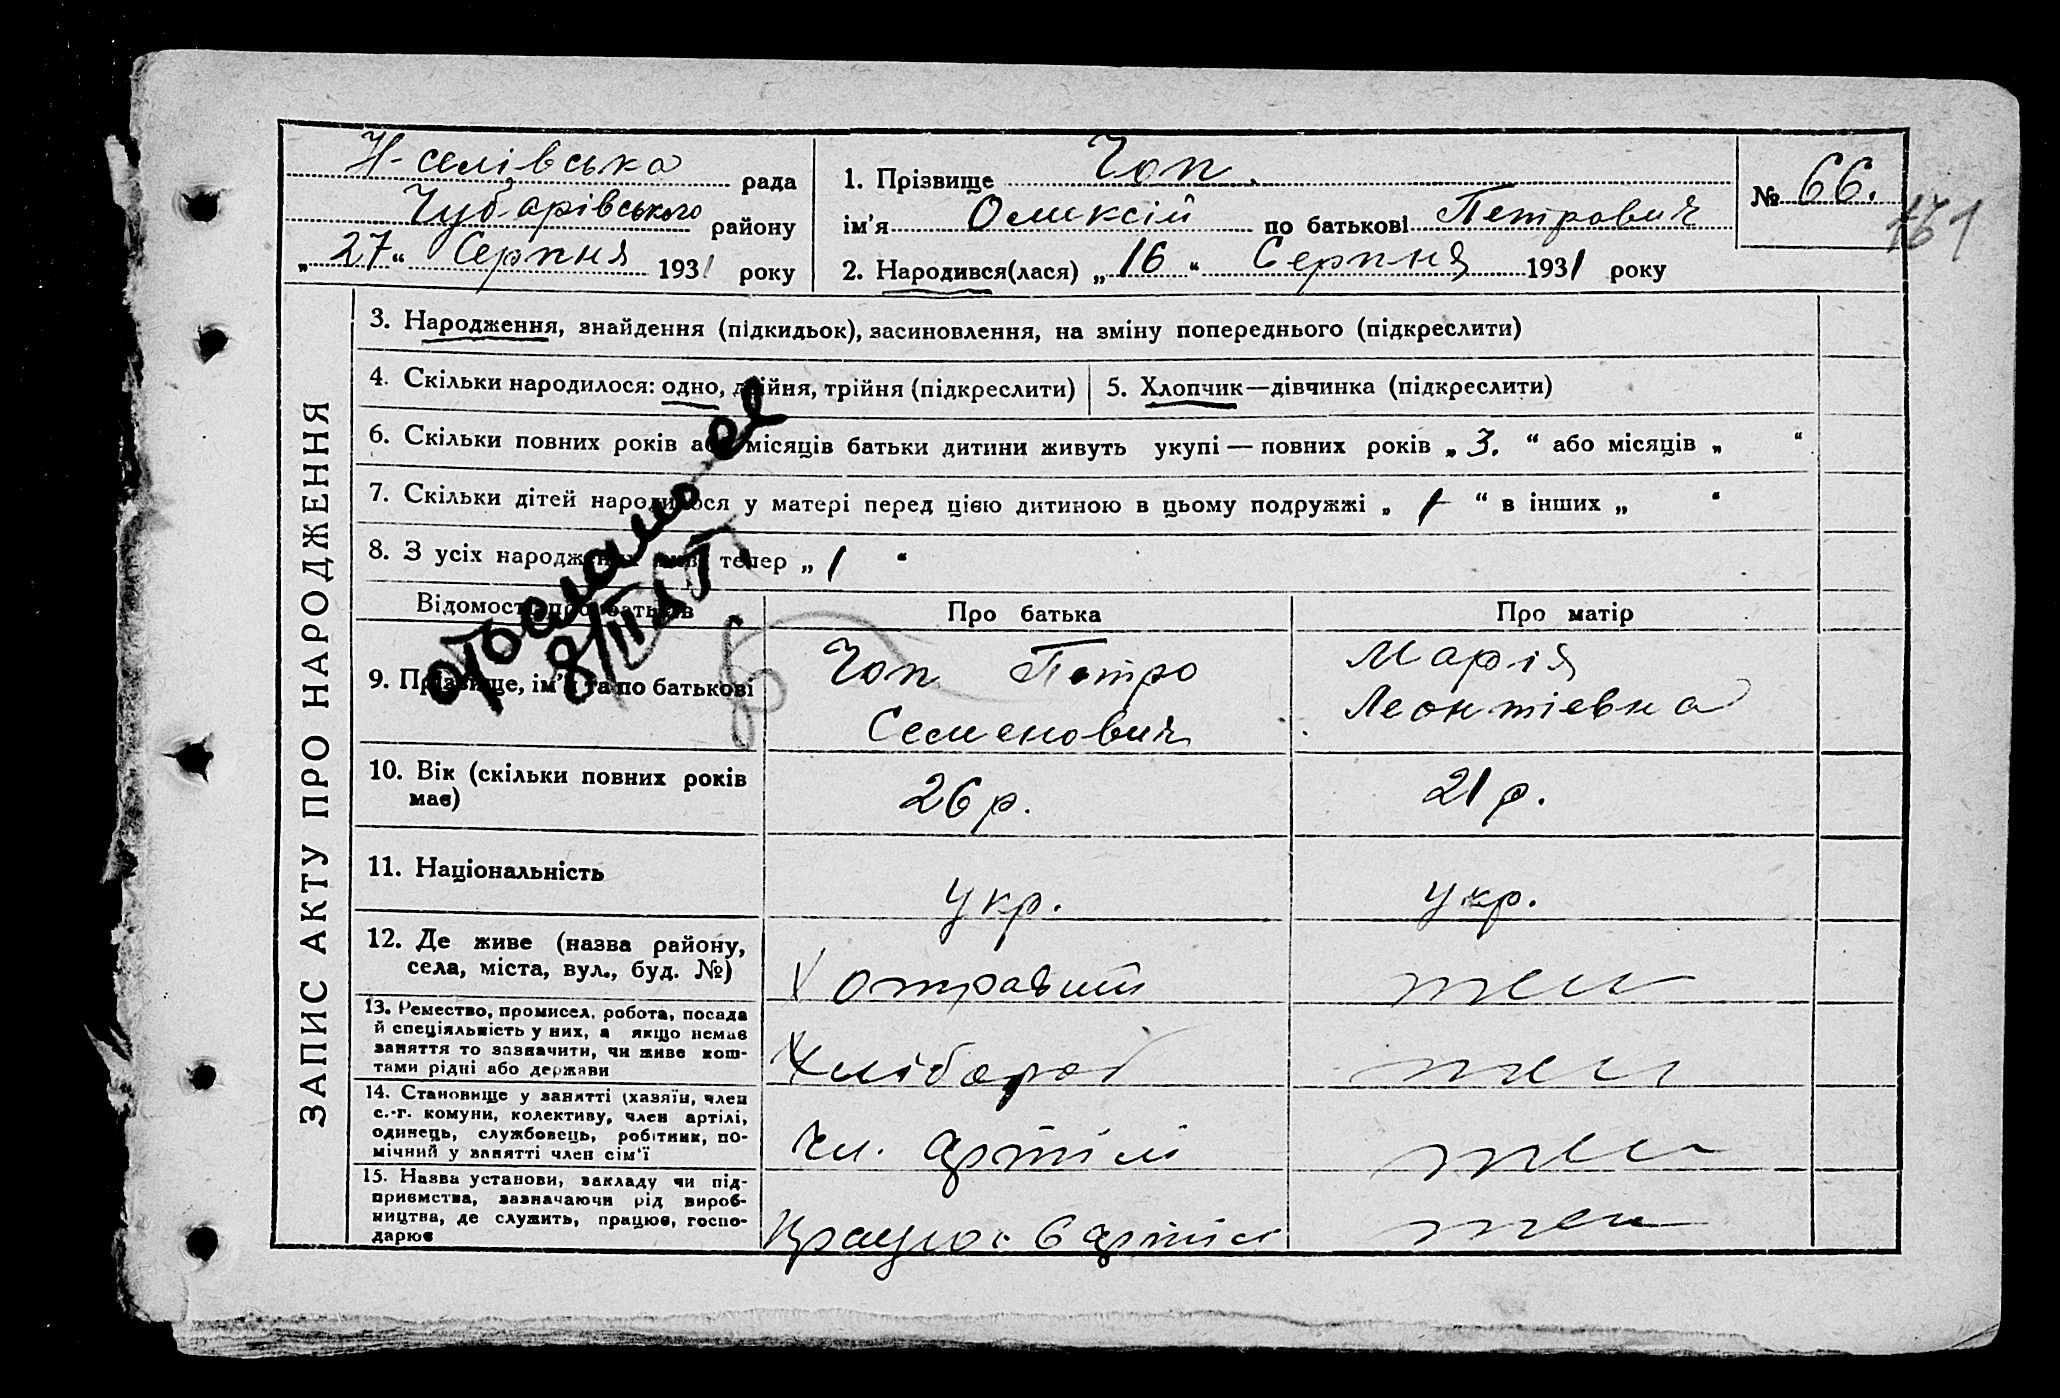 Н-селівська рада
Чубарівського району
„27“ Серпня 1931 року
1. Прізвище Чоп.
ім'я Олексій по батькові Петрович
2. Народився(лася) „16“ Серпня 1931 року
№ 66.
161
ЗАПИС АКТУ ПРО НАРОДЖЕННЯ
3. Народження, знайдення (підкидьок), засиновлення, на зміну попереднього (підкреслити)
4. Скільки народилося: одно, двійня, трійня (підкреслити)
5. Хлопчик—дівчинка (підкреслити)
6. Скільки повних років або місяців батьки дитини живуть укупі — повних років „3.“ або місяців „ “
7. Скільки дітей народилося у матері перед цією дитиною в цьому подружжі „1“ в інших „ “
8. З усіх народжених живі тепер „1“
Відомості про батьків
Про батька
Про матір
9. Прізвище, ім'я та по батькові
Чоп Петро
Семенович
Марія
Леонтіевна
10. Вік (скільки повних років
має)
26 р.
21 р.
11. Національність
укр.
укр.
12. Де живе (назва району,
села, міста, вул., буд. №)
13. Ремество, промисел, робота, посада
й спеціяльність у них, а якщо немає
заняття то зазначити, чи живе кош-
тами рідні або держави
Хлібороб
14. Становище у занятті (хазяїн, член
с.-г. комуни, колективу, член артілі,
одинець, службовець, робітник, по-
мічний у занятті член сім'ї
Чл. артілі
15. Назва установи, закладу чи під-
приємства, зазначаючи рід вироб-
ництва, де служить, працює, госпо-
дарює
Працює в артілі